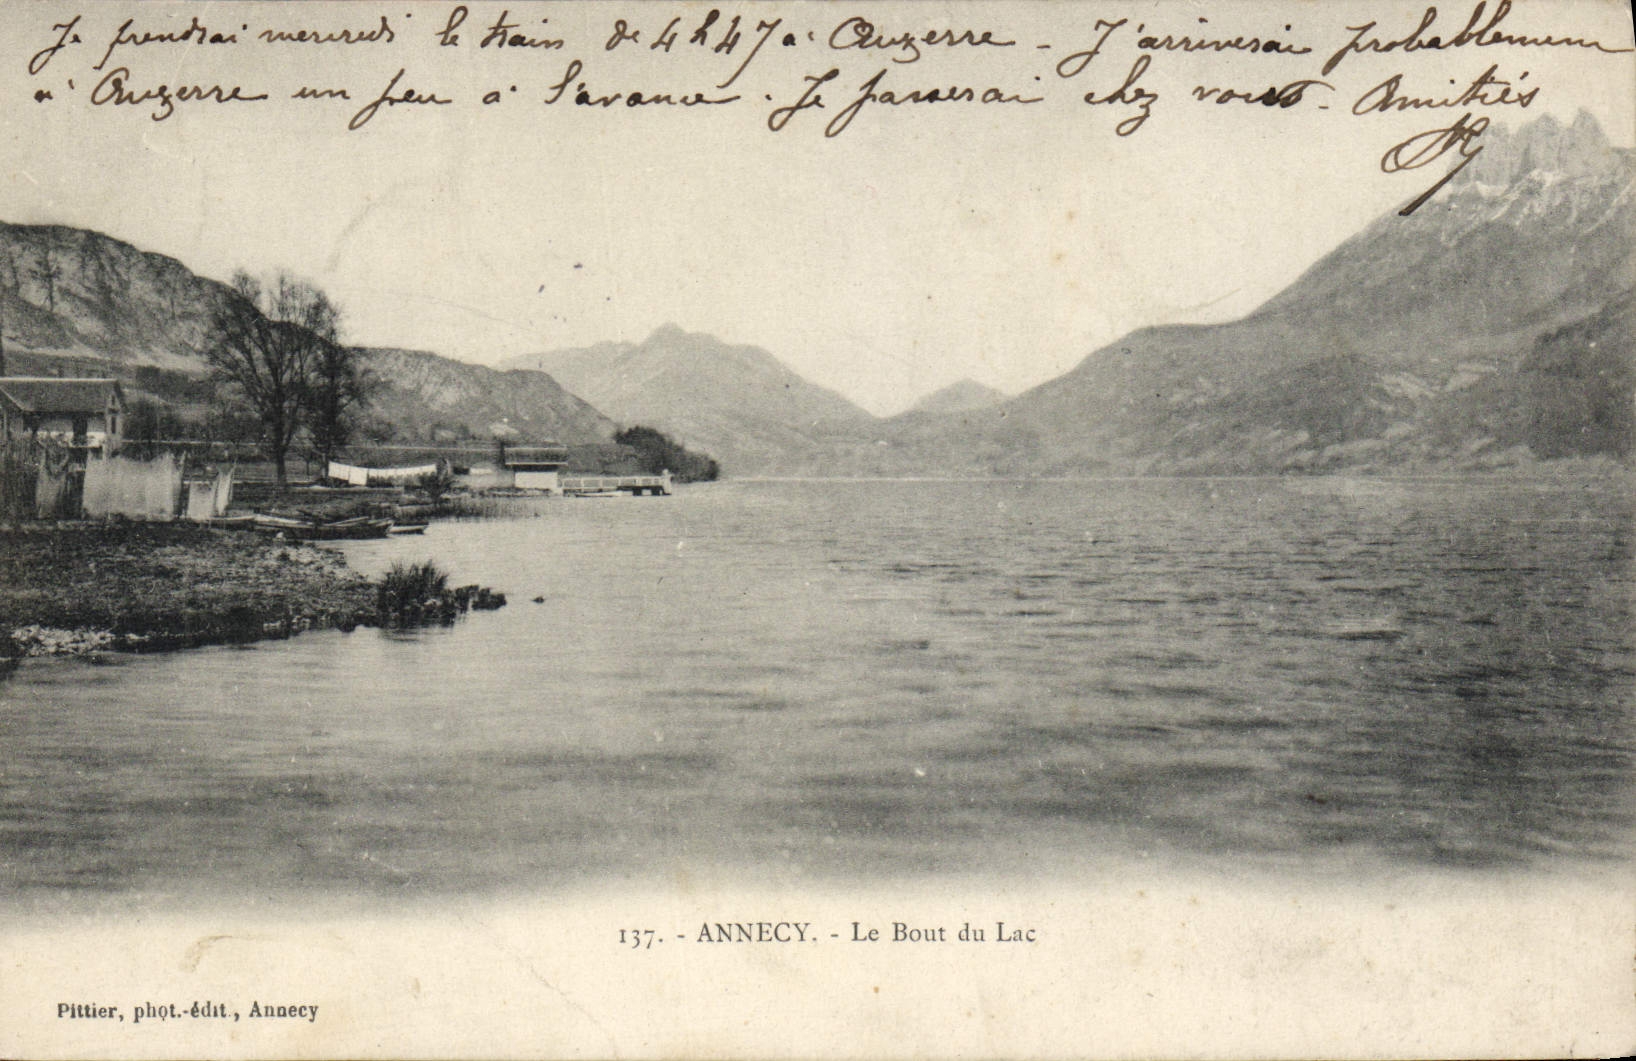 Je prendrai mercredi le train de 4 h 47 à Auxerre - J'arriverai probablement
à Auxerre un peu à l'avance. Je passerai chez vous - Amitiés
137. - ANNECY. - Le Bout du Lac
Pittier, phot.-édit., Annecy